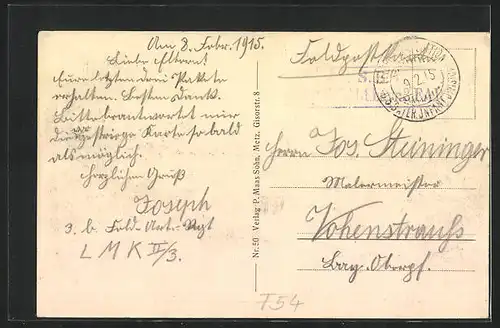 Am 8. Febr. 1915.
Liebe Eltern!
Eure letzten drei Pakete
erhalten. Besten Dank.
Bitte beantwortet mir
die gestrige Karte so bald
als möglich.
Herzlichen Gruß
Joseph
3. b. Feld-Art.-Rgt
L M K II/3.
Nr. 50 Verlag P. Maas Sohn, Metz, Gisorstr. 8
Feldpostkarte
9.2.15
Herrn Jos. Steininger
Malermeister
Vohenstrauss
Bay. Oberpf.
F54